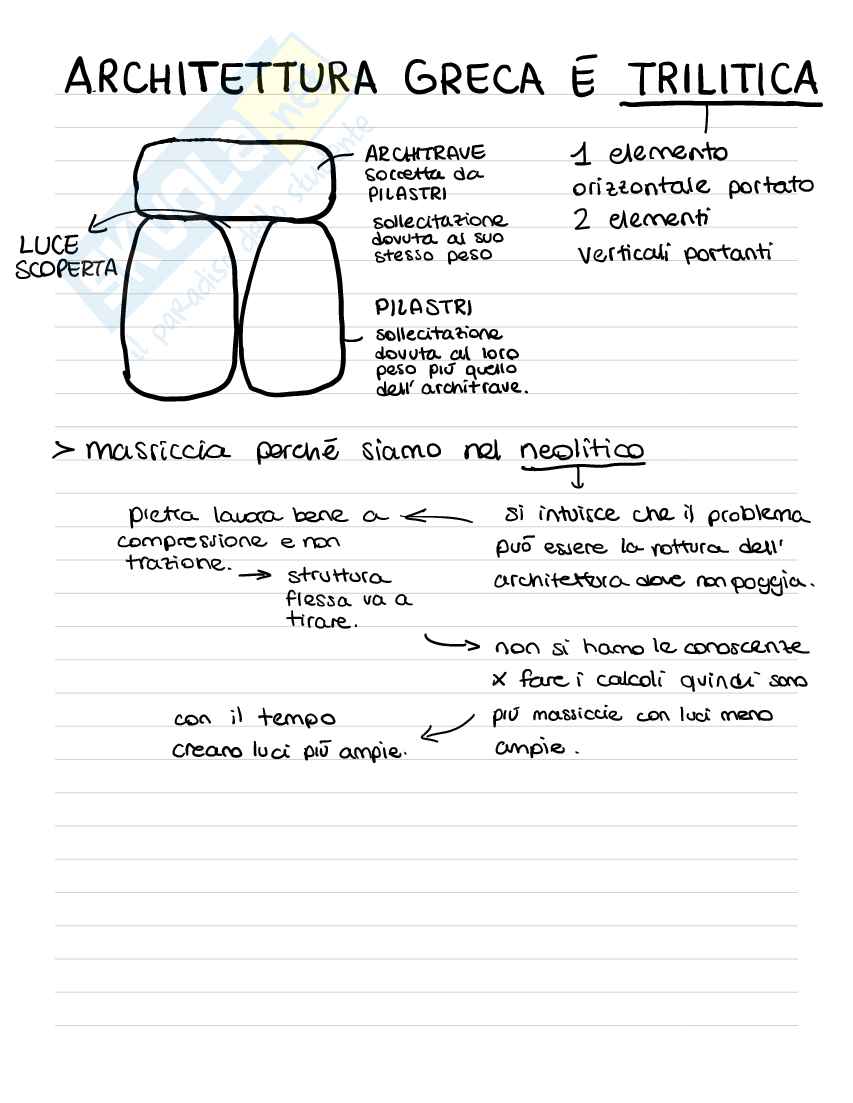 ARCHITETTURA GRECA É TRILITICA
ARCHITRAVE
sorretta da
PILASTRI
sollecitazione
dovuta al suo
stesso peso
1 elemento
orizzontale portato
2 elementi
verticali portanti
LUCE
SCOPERTA
PILASTRI
sollecitazione
dovuta al loro
peso più quello
dell' architrave.
> massiccia perché siamo nel neolitico
pietra lavora bene a
compressione e non
trazione.
struttura
flessa va a
tirare.
si intuisce che il problema
può essere la rottura dell'
architettura dove non poggia.
non si hanno le conoscenze
x fare i calcoli quindi sono
più massiccie con luci meno
ampie.
con il tempo
creano luci più ampie.
SKUOLA.net
il paradiso dello studente